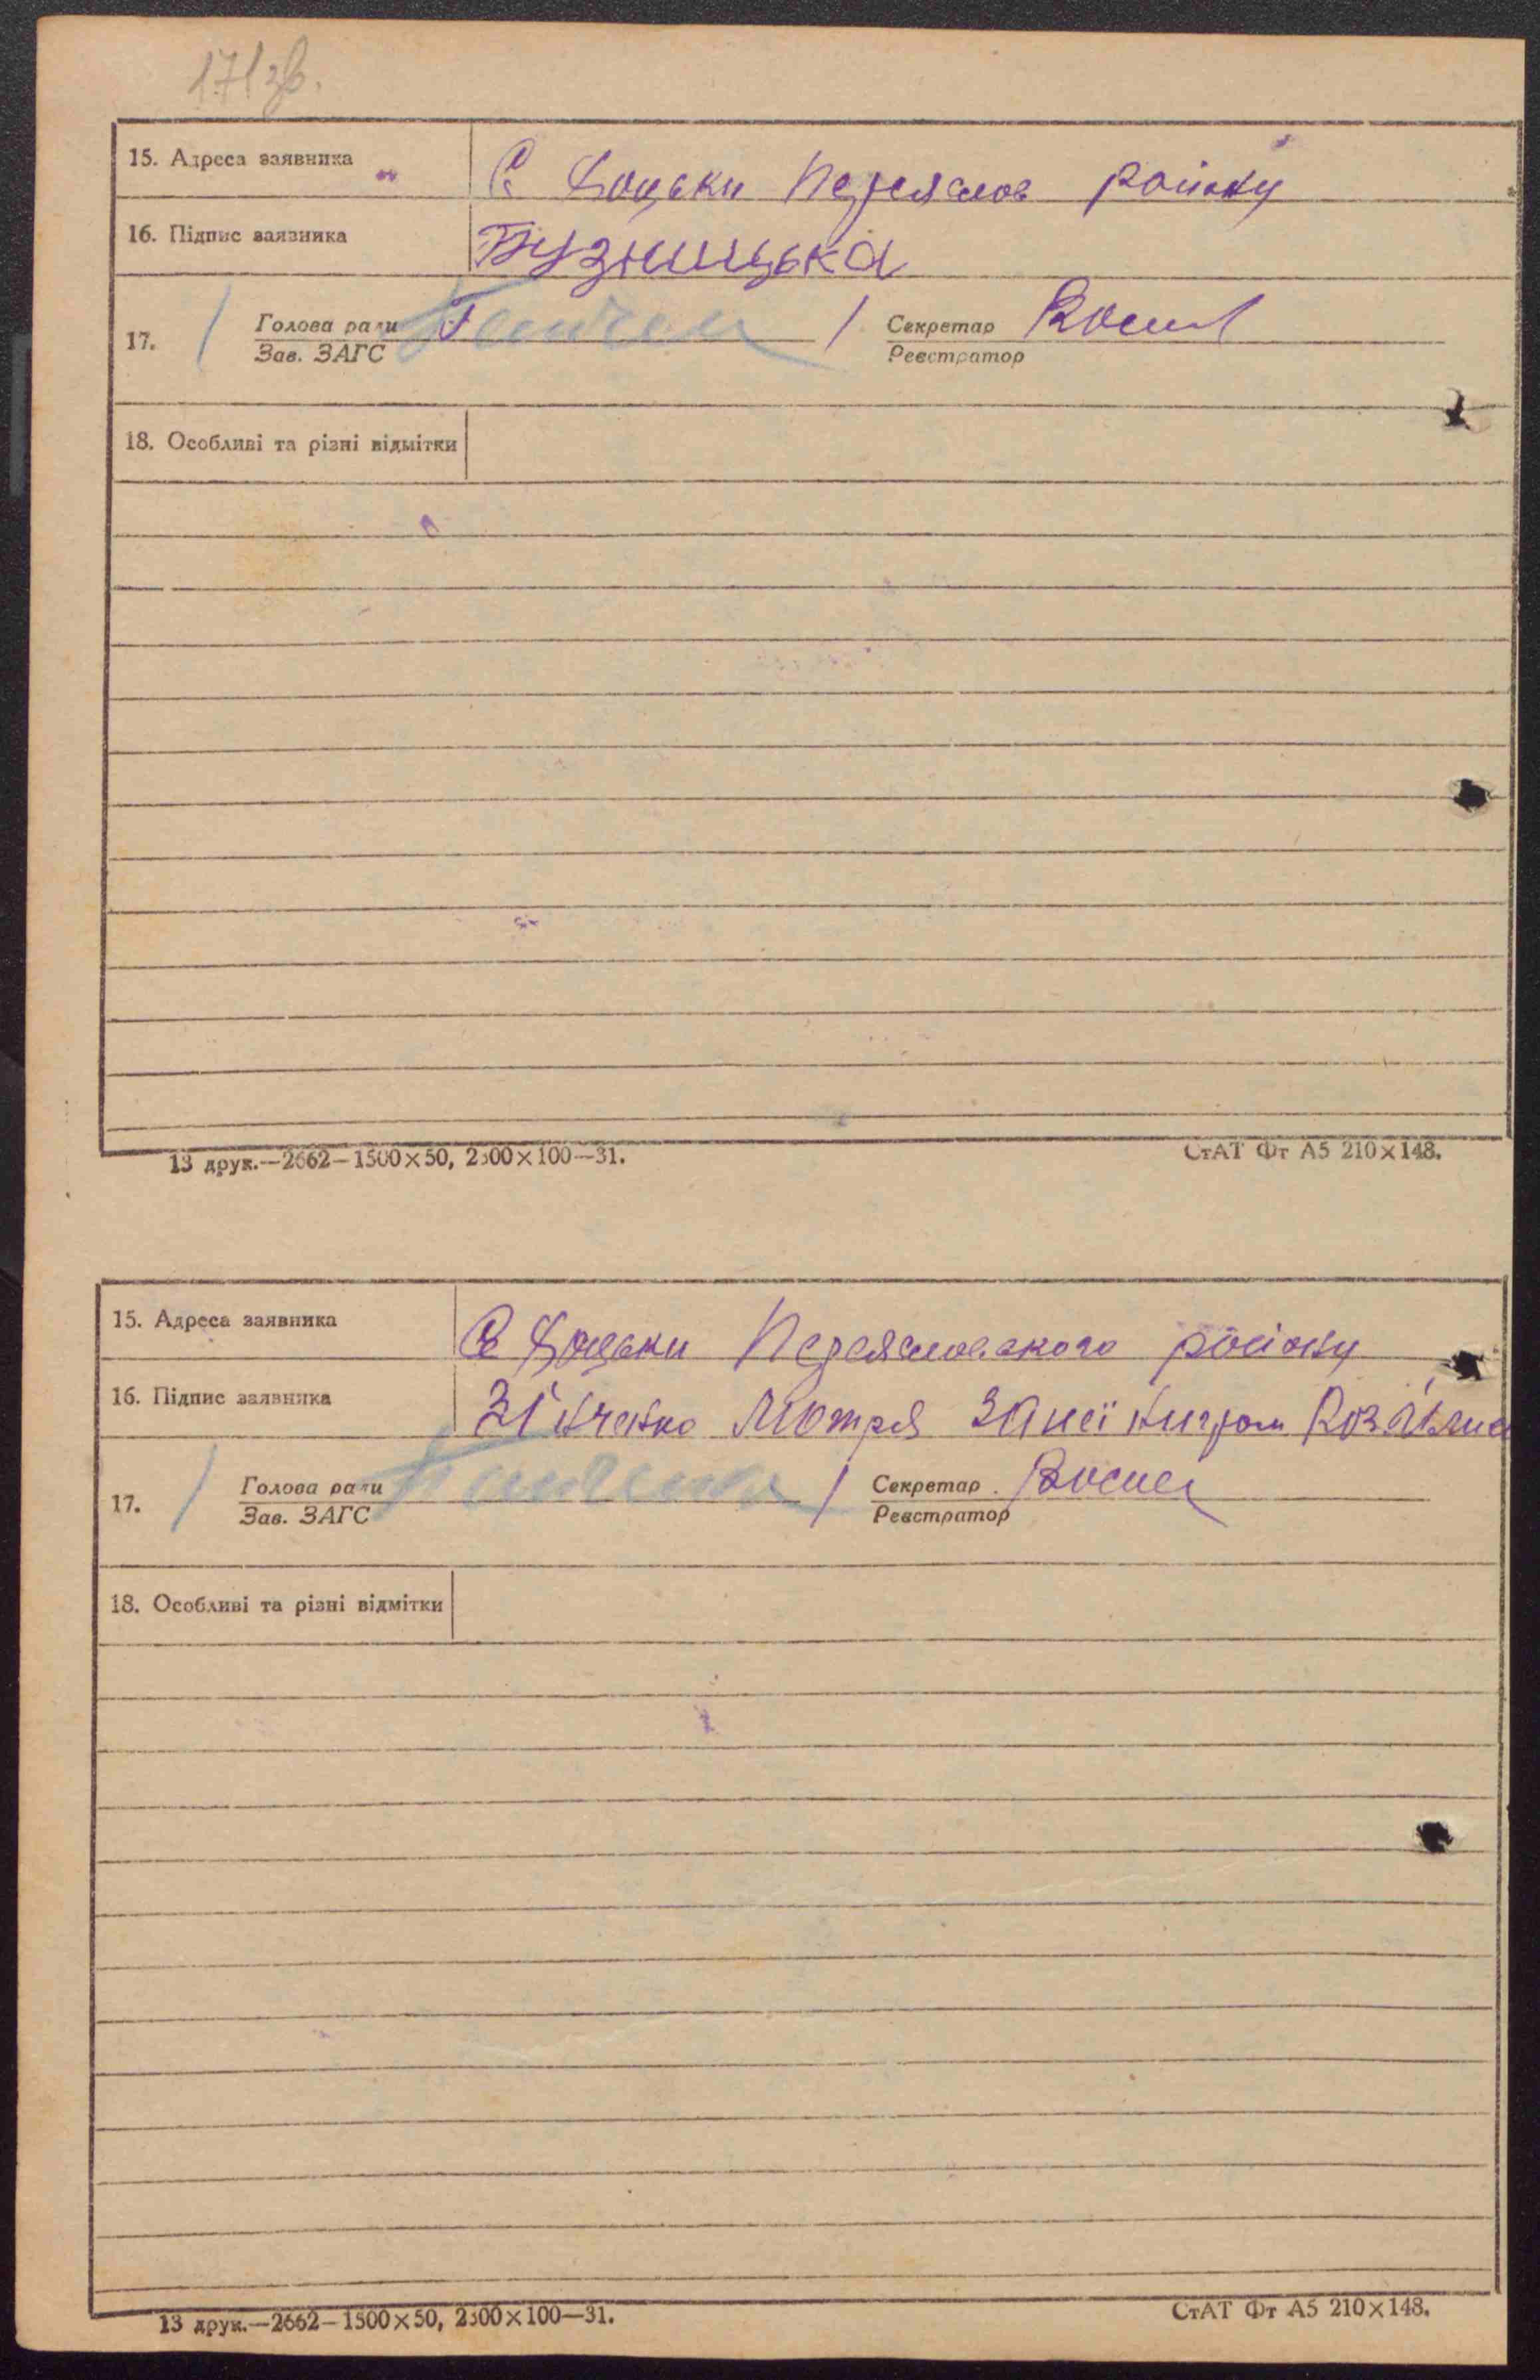 171зв.
15. Адреса заявника С Доцьки Переяслов району
16. Підпис заявника Бузницька
17. Голова ради Секретар
Зав. ЗАГС Реєстратор
18. Особливі та різні відмітки
13 друк.—2662—1500×50, 2300×100—31. СтАТ Фт А5 210×148.
15. Адреса заявника С Доцьки Переясловського району
16. Підпис заявника Зінченко Мотря За неї
17. Голова ради Секретар
Зав. ЗАГС Реєстратор
18. Особливі та різні відмітки
13 друк.—2662—1500×50, 2300×100—31. СтАТ Фт А5 210×148.